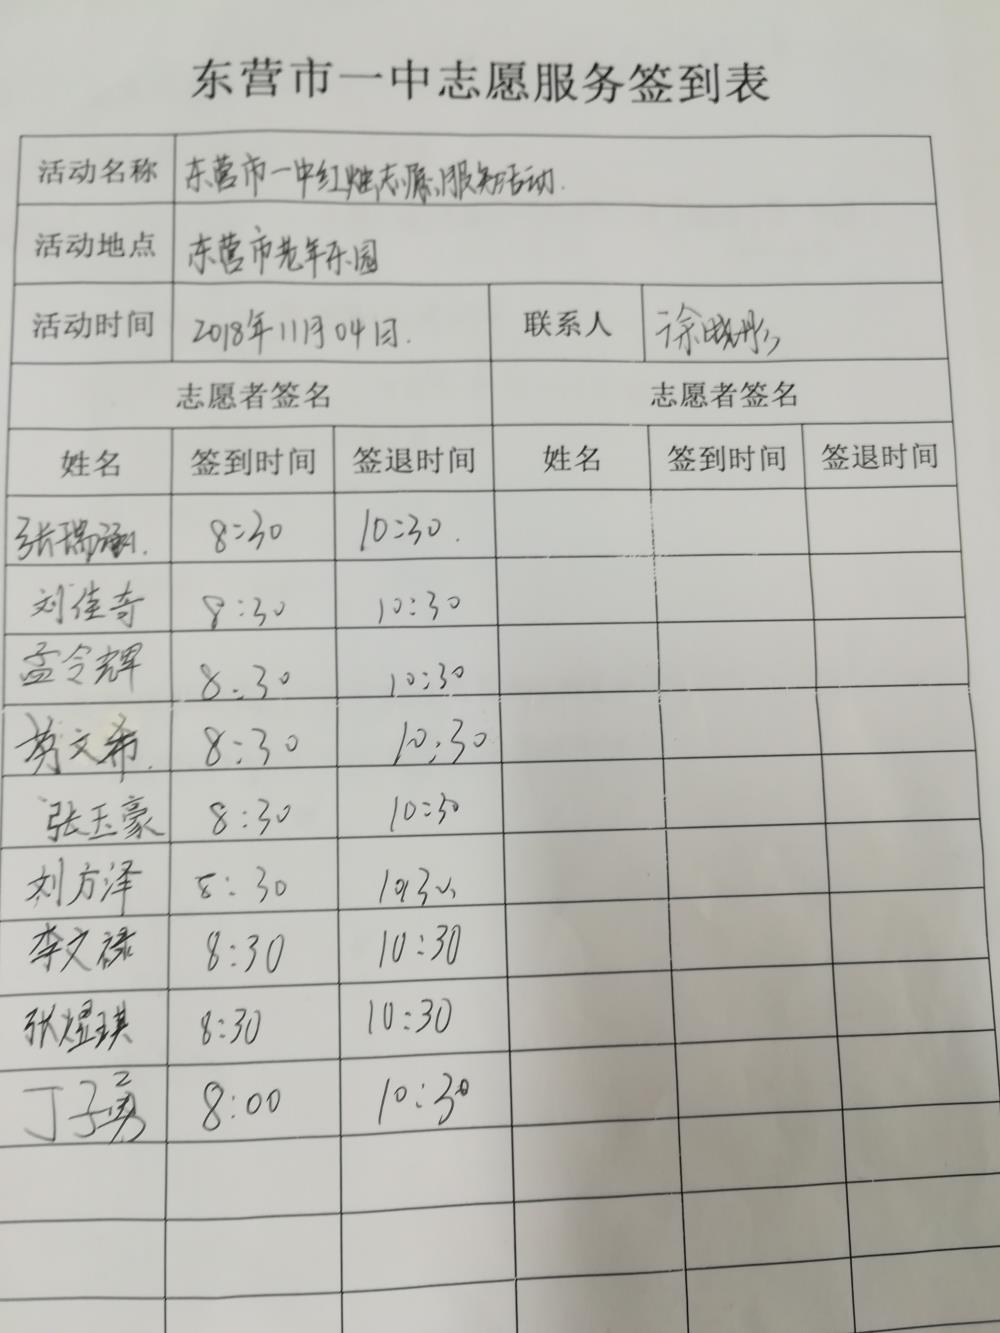 东营市一中志愿服务签到表
活动名称 东营市一中红烛志愿服务活动.
活动地点 东营市老年乐园
活动时间 2018年11月04日. 联系人 徐晓彤
志愿者签名 志愿者签名
姓名 签到时间 签退时间 姓名 签到时间 签退时间
张瑞 8:30 10:30.
刘佳奇 8:30 10:30
孟令辉 8:30 10:30
文希. 8:30 10:30
张玉豪 8:30 10:30
刘方泽 8:30 10:30
李文禄 8:30 10:30
张煜琪 8:30 10:30
丁子勇 8:00 10:30